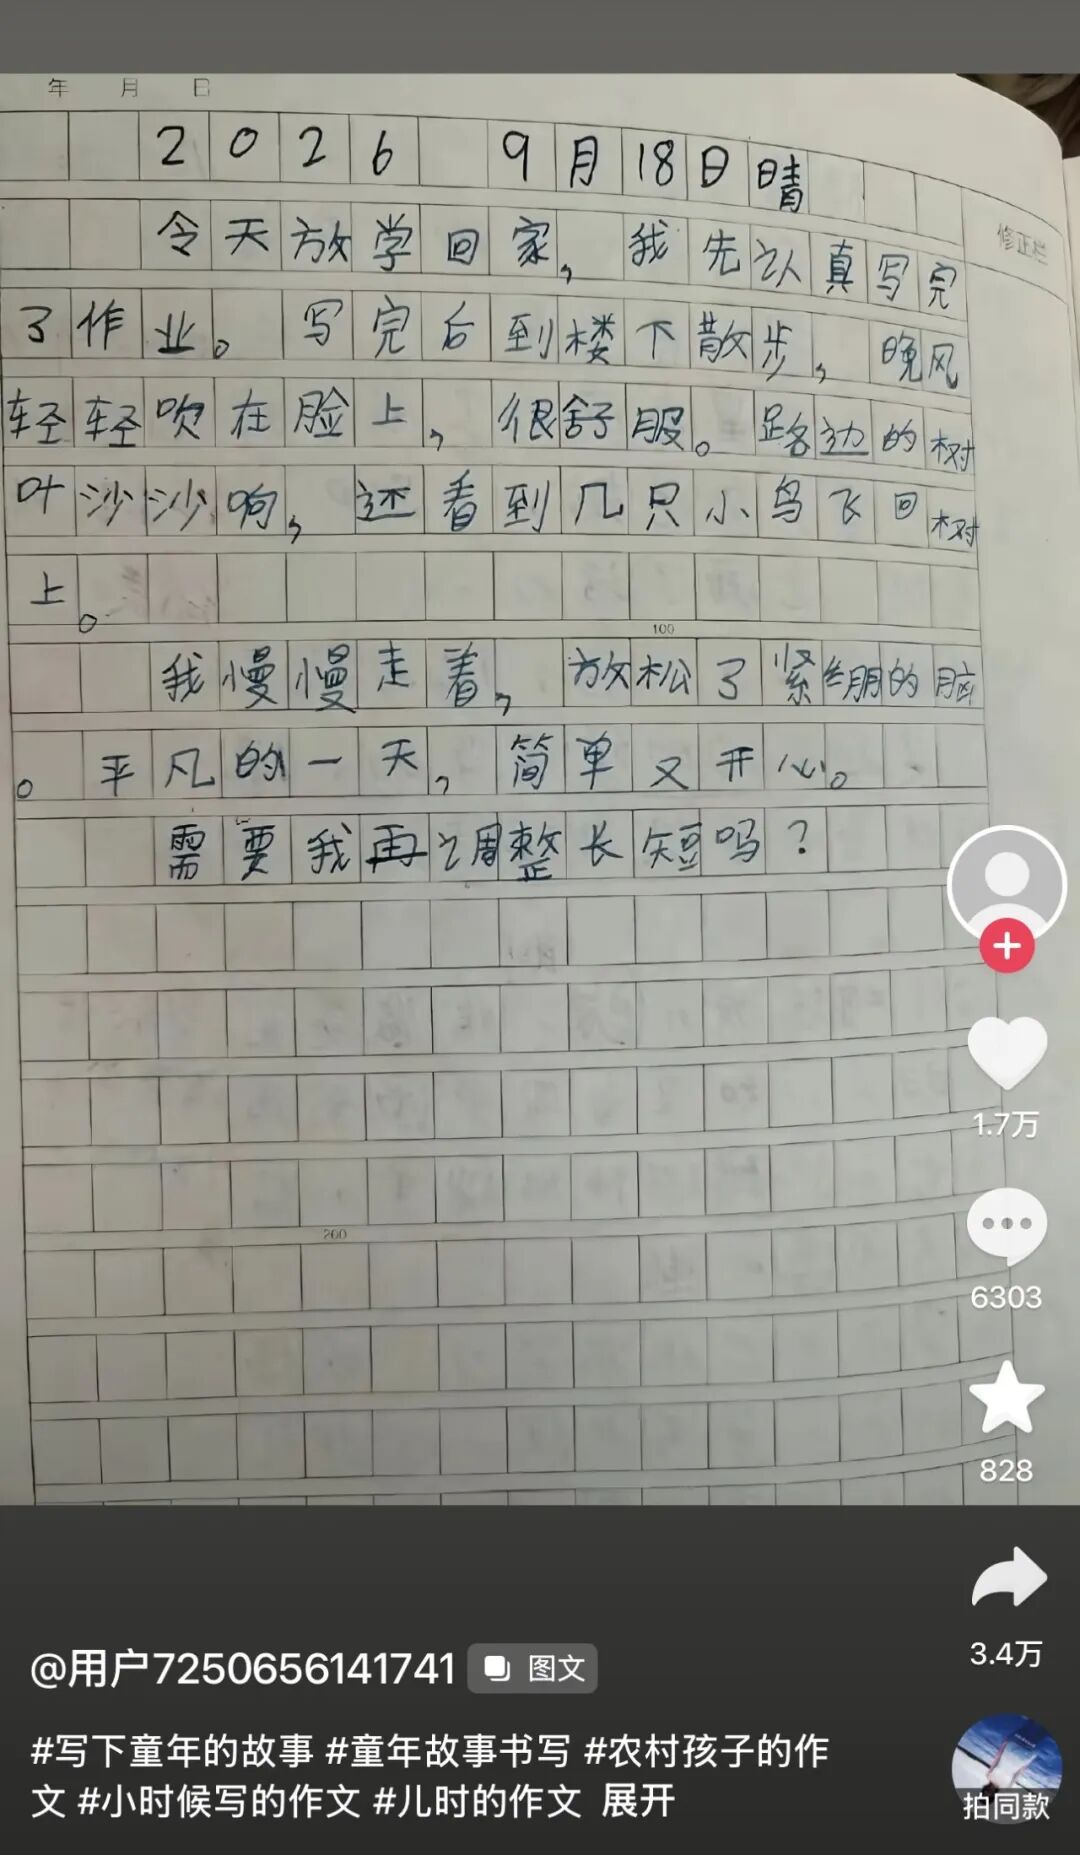 年 月 日
2026 9月18日晴
今天放学回家,我先认真写完
了作业。写完后到楼下散步,晚风
轻轻吹在脸上,很舒服。路边的树
叶沙沙响,还看到几只小鸟飞回树
上。
100
我慢慢走着,放松了紧绷的脑
。平凡的一天,简单又开心。
需要我再调整长短吗?
200
修正栏
1.7万
6303
828
3.4万
@用户7250656141741 图文
#写下童年的故事 #童年故事书写 #农村孩子的作
文 #小时候写的作文 #儿时的作文 展开
拍同款